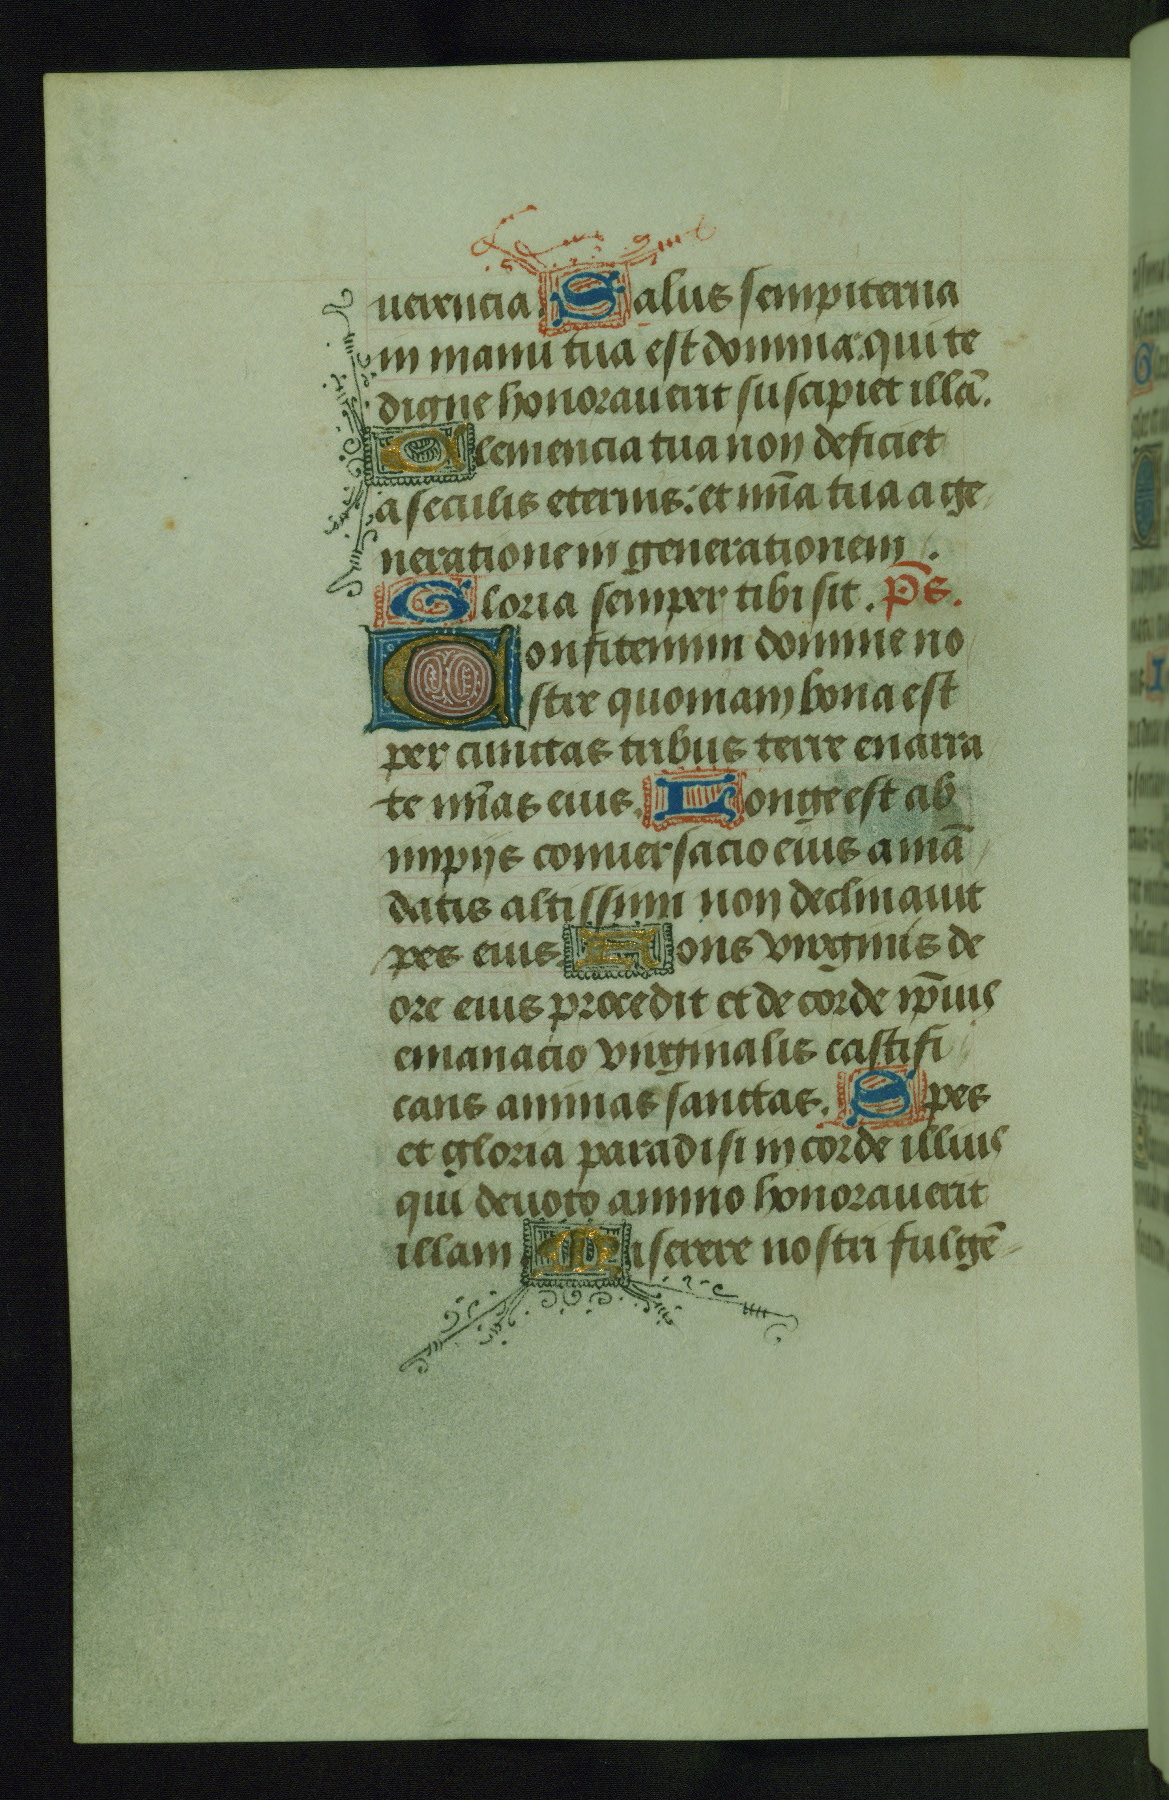 uerencia. Salus sempiterna
in manu tua est domina: qui te
digne honorauerit suscipiet illā.
Clemencia tua non deficiet
a seculis eternis: et mīa tua a ge
neratione in generationem.
Gloria semper tibi sit. P̄s.
Confitemini domine no
stre quoniam bona est
per cunctas tribus terre enarra
te mīas eius. Longe est ab
impijs conuersacio eius a mā
datis altissimi non declinauit
pes eius. Fons virginis de
ore eius procedit et de corde ip̄ius
emanacio virginalis castifi
cans animas sanctas. Spes
et gloria paradisi in corde illius
qui deuoto animo honorauerit
illam Miserere nostri fulgē